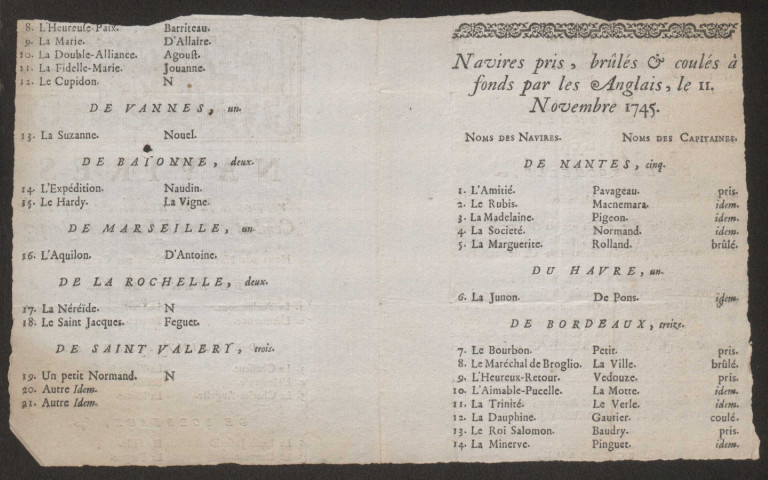 8. L'Heureuse-Paix. Barriteau.
9. La Marie. D'Allaire.
10. La Double-Alliance. Agoust.
11. La Fidelle-Marie. Jouanne.
12. Le Cupidon. N
DE VANNES, un.
13. La Suzanne. Nouel.
DE BAIONNE, deux.
14. L'Expédition. Naudin.
15. Le Hardy. La Vigne.
DE MARSEILLE, un
16. L'Aquilon. D'Antoine.
DE LA ROCHELLE, deux.
17. La Néréïde. N
18. Le Saint Jacques. Feguet.
DE SAINT VALERY, trois.
19. Un petit Normand. N
20. Autre Idem.
21. Autre Idem.
Navires pris, brûlés & coulés à
fonds par les Anglais, le 11.
Novembre 1745.
NOMS DES NAVIRES. NOMS DES CAPITAINES.
DE NANTES, cinq.
1. L'Amitié. Pavageau. pris.
2. Le Rubis. Macnemara. idem.
3. La Madelaine. Pigeon. idem.
4. La Societé. Normand. idem.
5. La Marguerite. Rolland. brûlé.
DU HAVRE, un.
6. La Junon. De Pons. idem.
DE BORDEAUX, treize.
7. Le Bourbon. Petit. pris.
8. Le Maréchal de Broglio. La Ville. brûlé.
9. L'Heureux-Retour. Vedouze. pris.
10. L'Aimable-Pucelle. La Motte. idem.
11. La Trinité. Le Verle. idem.
12. La Dauphine. Gautier. coulé.
13. Le Roi Salomon. Baudry. pris.
14. La Minerve. Pinguet. idem.